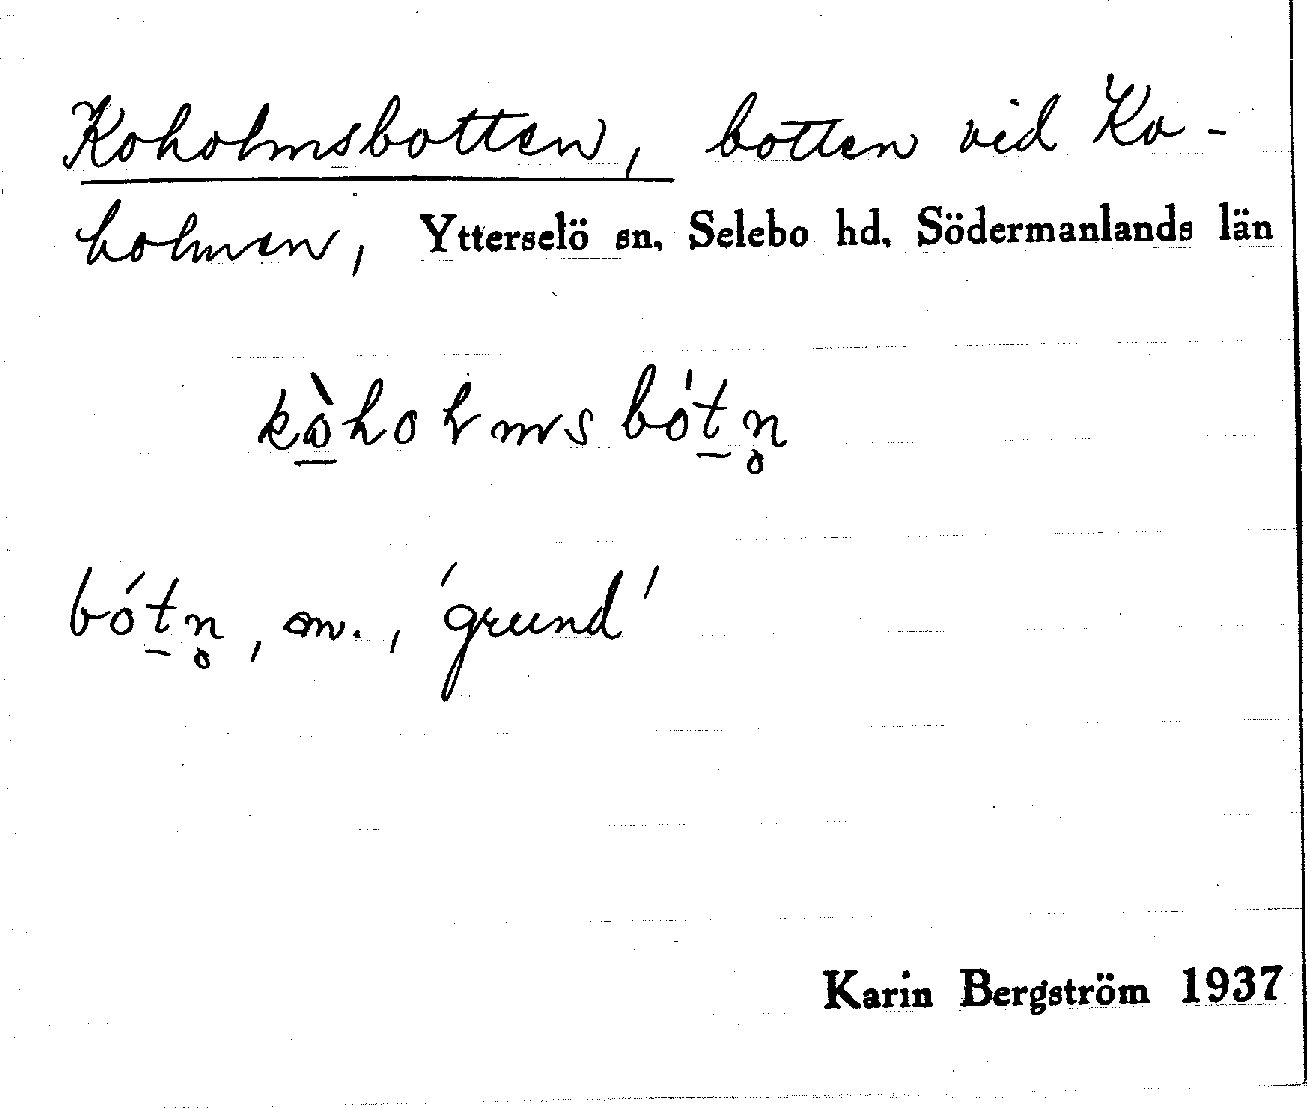 Koholmsbotten, botten vid Ko-
holmen, Ytterselö sn, Selebo hd, Södermanlands län
kò̱holmsbóṯn̥
bóṯn̥, m., 'grund'
Karin Bergström 1937